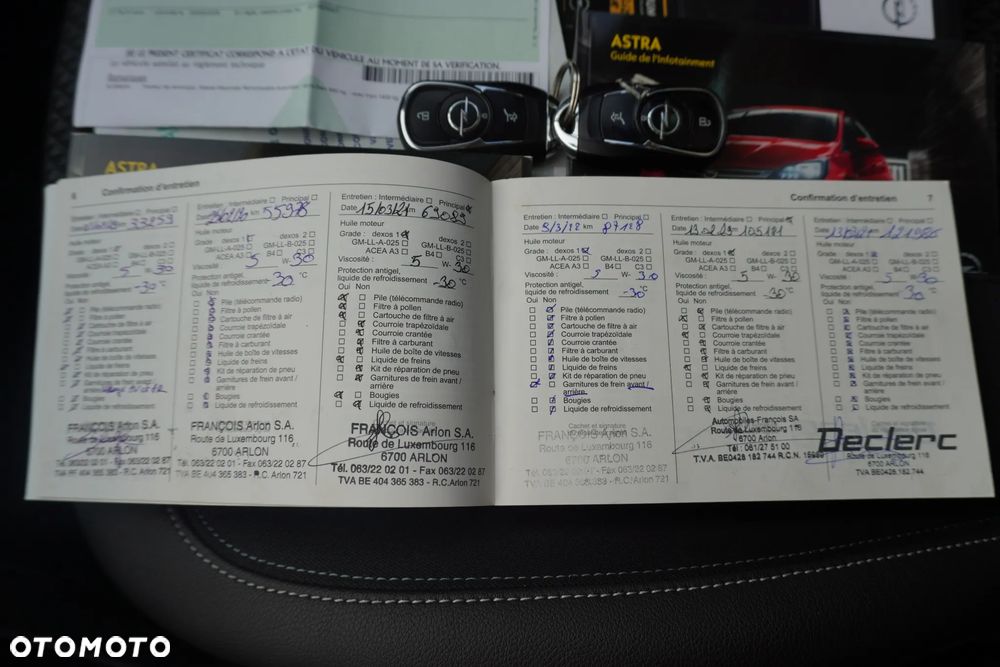 CE PRÉSENT CERTIFICAT CORRESPOND A L'ÉTAT DU VÉHICULE AU MOMENT DE SA VERIFICATION.
ASTRA
Guide de l'Infotainment
ASTRA
6 Confirmation d'entretien
33253
Huile moteur
dexos 2
GM-LL-A-025
GM-LL-B-025
ACEA A3
5 W- 30
Protection antigel,
liquide de refroidissement -30 °C
Oui Non
Pile (télécommande radio)
Filtre à pollen
Cartouche de filtre à air
Courroie trapézoïdale
Courroie crantée
Filtre à carburant
Huile de boîte de vitesses
Liquide de freins
Kit de réparation de pneu
Garnitures de frein avant /
Bougies
Liquide de refroidissement
FRANÇOIS Arlon S.A.
Route de Luxembourg 116
6700 ARLON
Tél. 063/22 02 01 - Fax 063/22 02 87
TVA BE 404 365 383 - R.C. Arlon 721
Entretien : Intermédiaire Principal
Date km 55978
Huile moteur
Grade : dexos 1 dexos 2
GM-LL-A-025 GM-LL-B-025
ACEA A3 B4 C3
Viscosité : 5 W- 30
Protection antigel,
liquide de refroidissement -30 °C
Oui Non
Pile (télécommande radio)
Filtre à pollen
Cartouche de filtre à air
Courroie trapézoïdale
Courroie crantée
Filtre à carburant
Huile de boîte de vitesses
Liquide de freins
Kit de réparation de pneu
Garnitures de frein avant /
arrière
Bougies
Liquide de refroidissement
FRANÇOIS Arlon S.A.
Route de Luxembourg 116
6700 ARLON
Tél. 063/22 02 01 - Fax 063/22 02 87
TVA BE 404 365 383 - R.C. Arlon 721
Entretien : Intermédiaire Principal
Date 15/03/21 km 69089
Huile moteur
Grade : dexos 1 dexos 2
GM-LL-A-025 GM-LL-B-025
ACEA A3 B4 C3
Viscosité : 5 W- 30
Protection antigel,
liquide de refroidissement -30 °C
Oui Non
Pile (télécommande radio)
Filtre à pollen
Cartouche de filtre à air
Courroie trapézoïdale
Courroie crantée
Filtre à carburant
Huile de boîte de vitesses
Liquide de freins
Kit de réparation de pneu
Garnitures de frein avant /
arrière
Bougies
Liquide de refroidissement
FRANÇOIS Arlon S.A.
Route de Luxembourg 116
6700 ARLON
Tél. 063/22 02 01 - Fax 063/22 02 87
TVA BE 404 365 383 - R.C. Arlon 721
Confirmation d'entretien 7
Entretien : Intermédiaire Principal
Date km 87128
Huile moteur
Grade : dexos 1 dexos 2
GM-LL-A-025 GM-LL-B-025
ACEA A3 B4 C3
Viscosité : 5 W- 30
Protection antigel,
liquide de refroidissement -30 °C
Oui Non
Pile (télécommande radio)
Filtre à pollen
Cartouche de filtre à air
Courroie trapézoïdale
Courroie crantée
Filtre à carburant
Huile de boîte de vitesses
Liquide de freins
Kit de réparation de pneu
Garnitures de frein avant /
arrière
Bougies
Liquide de refroidissement
Cachet et signature
FRANÇOIS Arlon S.A.
Route de Luxembourg 116
6700 ARLON
Tél. 063/22 02 01 - Fax 063/22 02 87
TVA BE 404 365 383 - R.C. Arlon 721
Entretien : Intermédiaire Principal
Date 13.02.23 km 105181
Huile moteur
Grade : dexos 1 dexos 2
GM-LL-A-025 GM-LL-B-025
ACEA A3 B4 C3
Viscosité : 5 W- 30
Protection antigel,
liquide de refroidissement -30 °C
Oui Non
Pile (télécommande radio)
Filtre à pollen
Cartouche de filtre à air
Courroie trapézoïdale
Courroie crantée
Filtre à carburant
Huile de boîte de vitesses
Liquide de freins
Kit de réparation de pneu
Garnitures de frein avant /
arrière
Bougies
Liquide de refroidissement
Automobiles-François SA
Route de Luxembourg 116
6700 Arlon
Tél : 061/27 51 00
T.V.A. BE0428 182 744 R.C.N.
Entretien : Intermédiaire Principal
Date km
Huile moteur
Grade : dexos 1 dexos 2
GM-LL-A-025 GM-LL-B-025
ACEA A3 B4 C3
Viscosité : 5 W- 30
Protection antigel,
liquide de refroidissement 30 °C
Oui Non
Pile (télécommande radio)
Filtre à pollen
Cartouche de filtre à air
Courroie trapézoïdale
Courroie crantée
Filtre à carburant
Huile de boîte de vitesses
Liquide de freins
Kit de réparation de pneu
Garnitures de frein avant /
arrière
Bougies
Liquide de refroidissement
Cachet et signature
Declerc
Route de Luxembourg 116
6700 ARLON
BE0428.182.744
OTOMOTO